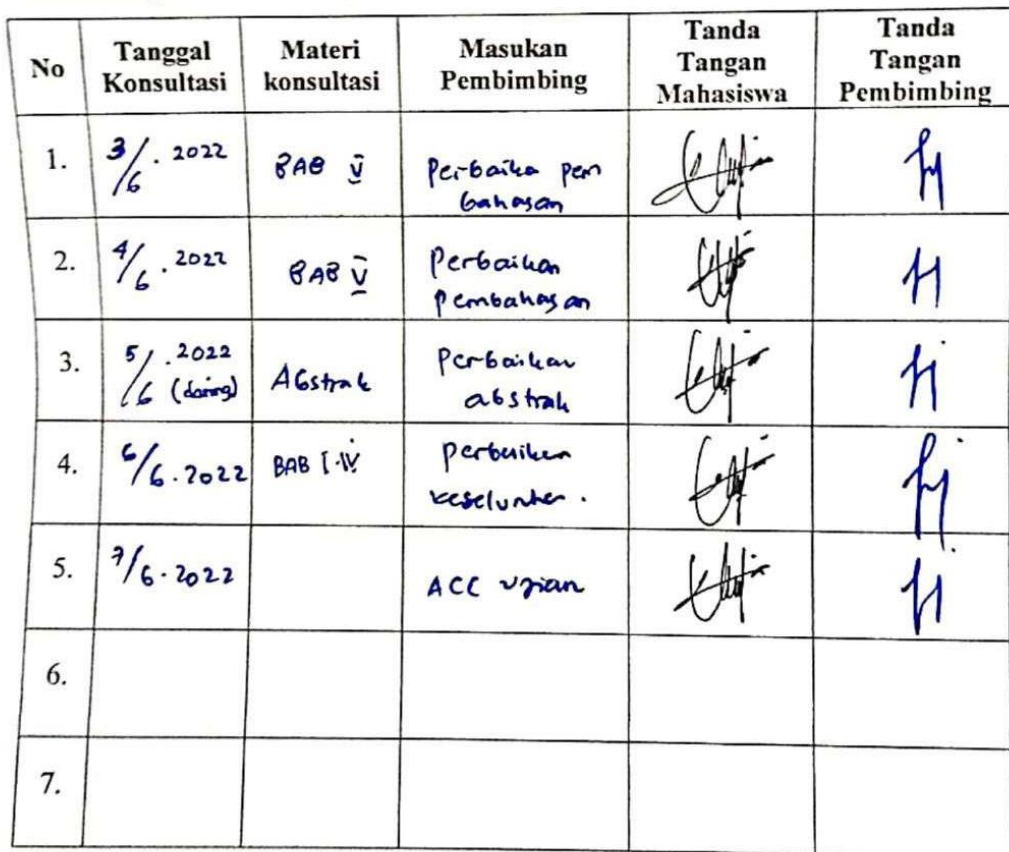 No Tanggal Konsultasi Materi konsultasi Masukan Pembimbing Tanda Tangan Mahasiswa Tanda Tangan Pembimbing
1. 3/6. 2022 BAB V Perbaika pem bahasan
2. 4/6. 2022 BAB V Perbaikan pembahasan
3. 5/6. 2022 (daring) Abstrak Perbaikan abstrak
4. 6/6. 2022 BAB I-IV perbaikan keseluruhan.
5. 7/6. 2022 ACC ujian
6.
7.